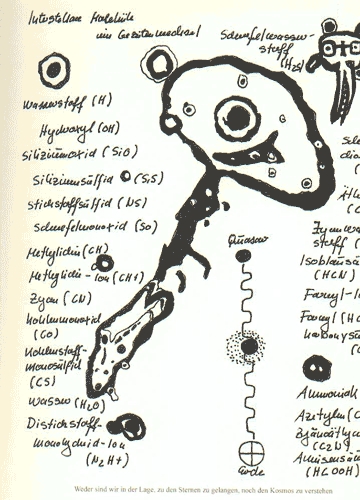 Interstellare Moleküle
im Gezeitenwechsel
Schwefelwasser-
stoff
(H2S)
Wasserstoff (H)
Hydroxyl (OH)
Siliziumoxid (SiO)
Siliziumsulfid (SiS)
Stickstoffsulfid (NS)
Schwefelmonoxid (SO)
Methylidin (CH)
Methylidin-Ion (CH+)
Zyan (CN)
Kohlenmonoxid
(CO)
Kohlenstoff-
monosulfid
(CS)
Wasser (H2O)
Distickstoff-
monohydrid-Ion
(N2H+)
Quasar
Erde
(HCN)
Formyl-I
Formyl (HC
Ammoniak
Azetylen (C
(C2N)
Ameisensä
(HCOOH)
Weder sind wir in der Lage, zu den Sternen zu gelangen, noch den Kosmos zu verstehen